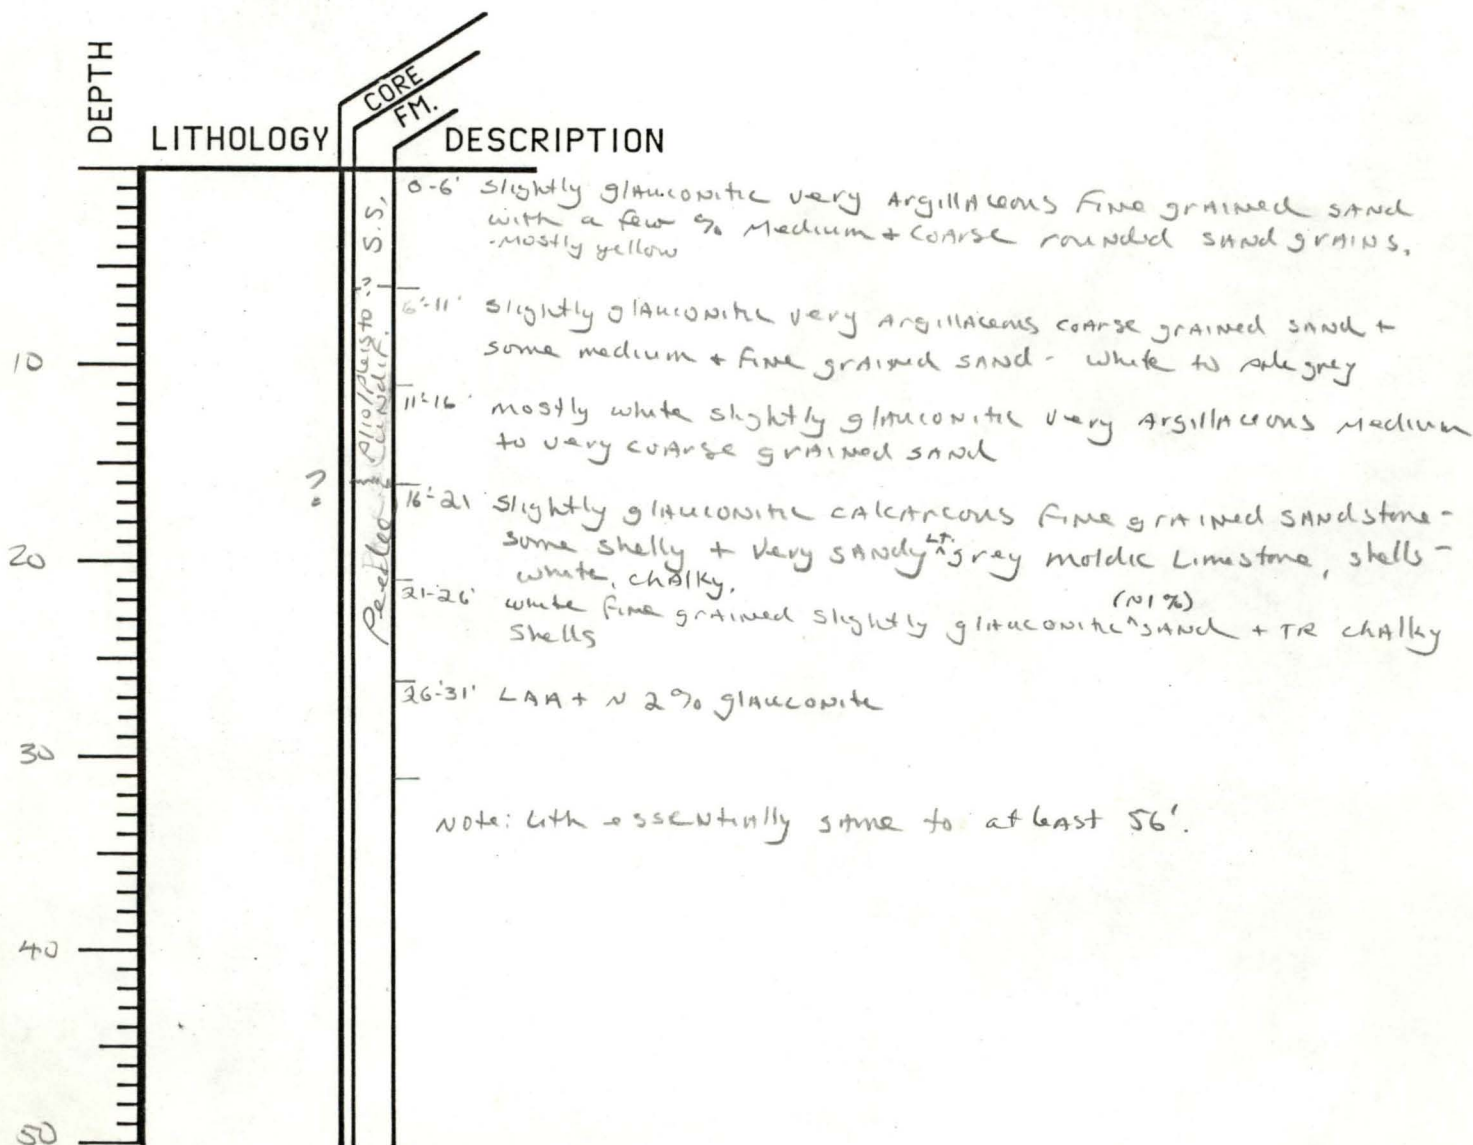 DEPTH
LITHOLOGY
CORE
FM.
DESCRIPTION
0-6' slightly glauconitic very Argillaceous fine grained sand
with a few % Medium + coarse rounded sand grains,
-Mostly yellow
6'-11' slightly glauconitic very Argillaceous coarse grained sand +
some medium + fine grained sand - white to pale grey
11'-16' mostly white slightly glauconitic very Argillaceous Medium
to very coarse grained sand
16'-21 slightly glauconitic calcareous fine grained sandstone -
some shelly + very sandy ^Lt. grey moldic Limestone, shells -
white, chalky,
21-26' white fine grained slightly glauconitic ^(~1%) sand + TR chalky
shells
26-31' LAA + ~ 2% glauconite
Note: Lith essentially same to at least 56'.
10
20
30
40
50
?
Plio/Pleisto ? S.S.
Peedee